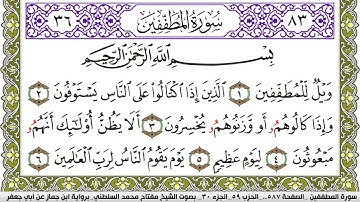 ٨٣ سُورَةُ المُطَفِّفِينَ ٣٦
بِسْمِ اللَّهِ الرَّحْمَٰنِ الرَّحِيمِ
وَيْلٌ لِّلْمُطَفِّفِينَ ١ الَّذِينَ إِذَا اكْتَالُوا عَلَى النَّاسِ يَسْتَوْفُونَ ٢
وَإِذَا كَالُوهُمُو أَو وَّزَنُوهُمُو يُخْسِرُونَ ٣ أَلَا يَظُنُّ أُولَٰئِكَ أَنَّهُمُو
مَبْعُوثُونَ ٤ لِيَوْمٍ عَظِيمٍ ٥ يَوْمَ يَقُومُ النَّاسُ لِرَبِّ الْعَالَمِينَ ٦
سورة المطففين . الصفحة ٥٨٧ .. الحزب ٥٩ الجزء ٣٠ .. بصوت الشيخ مفتاح محمد السلطني .. برواية ابن جماز عن أبي جعفر